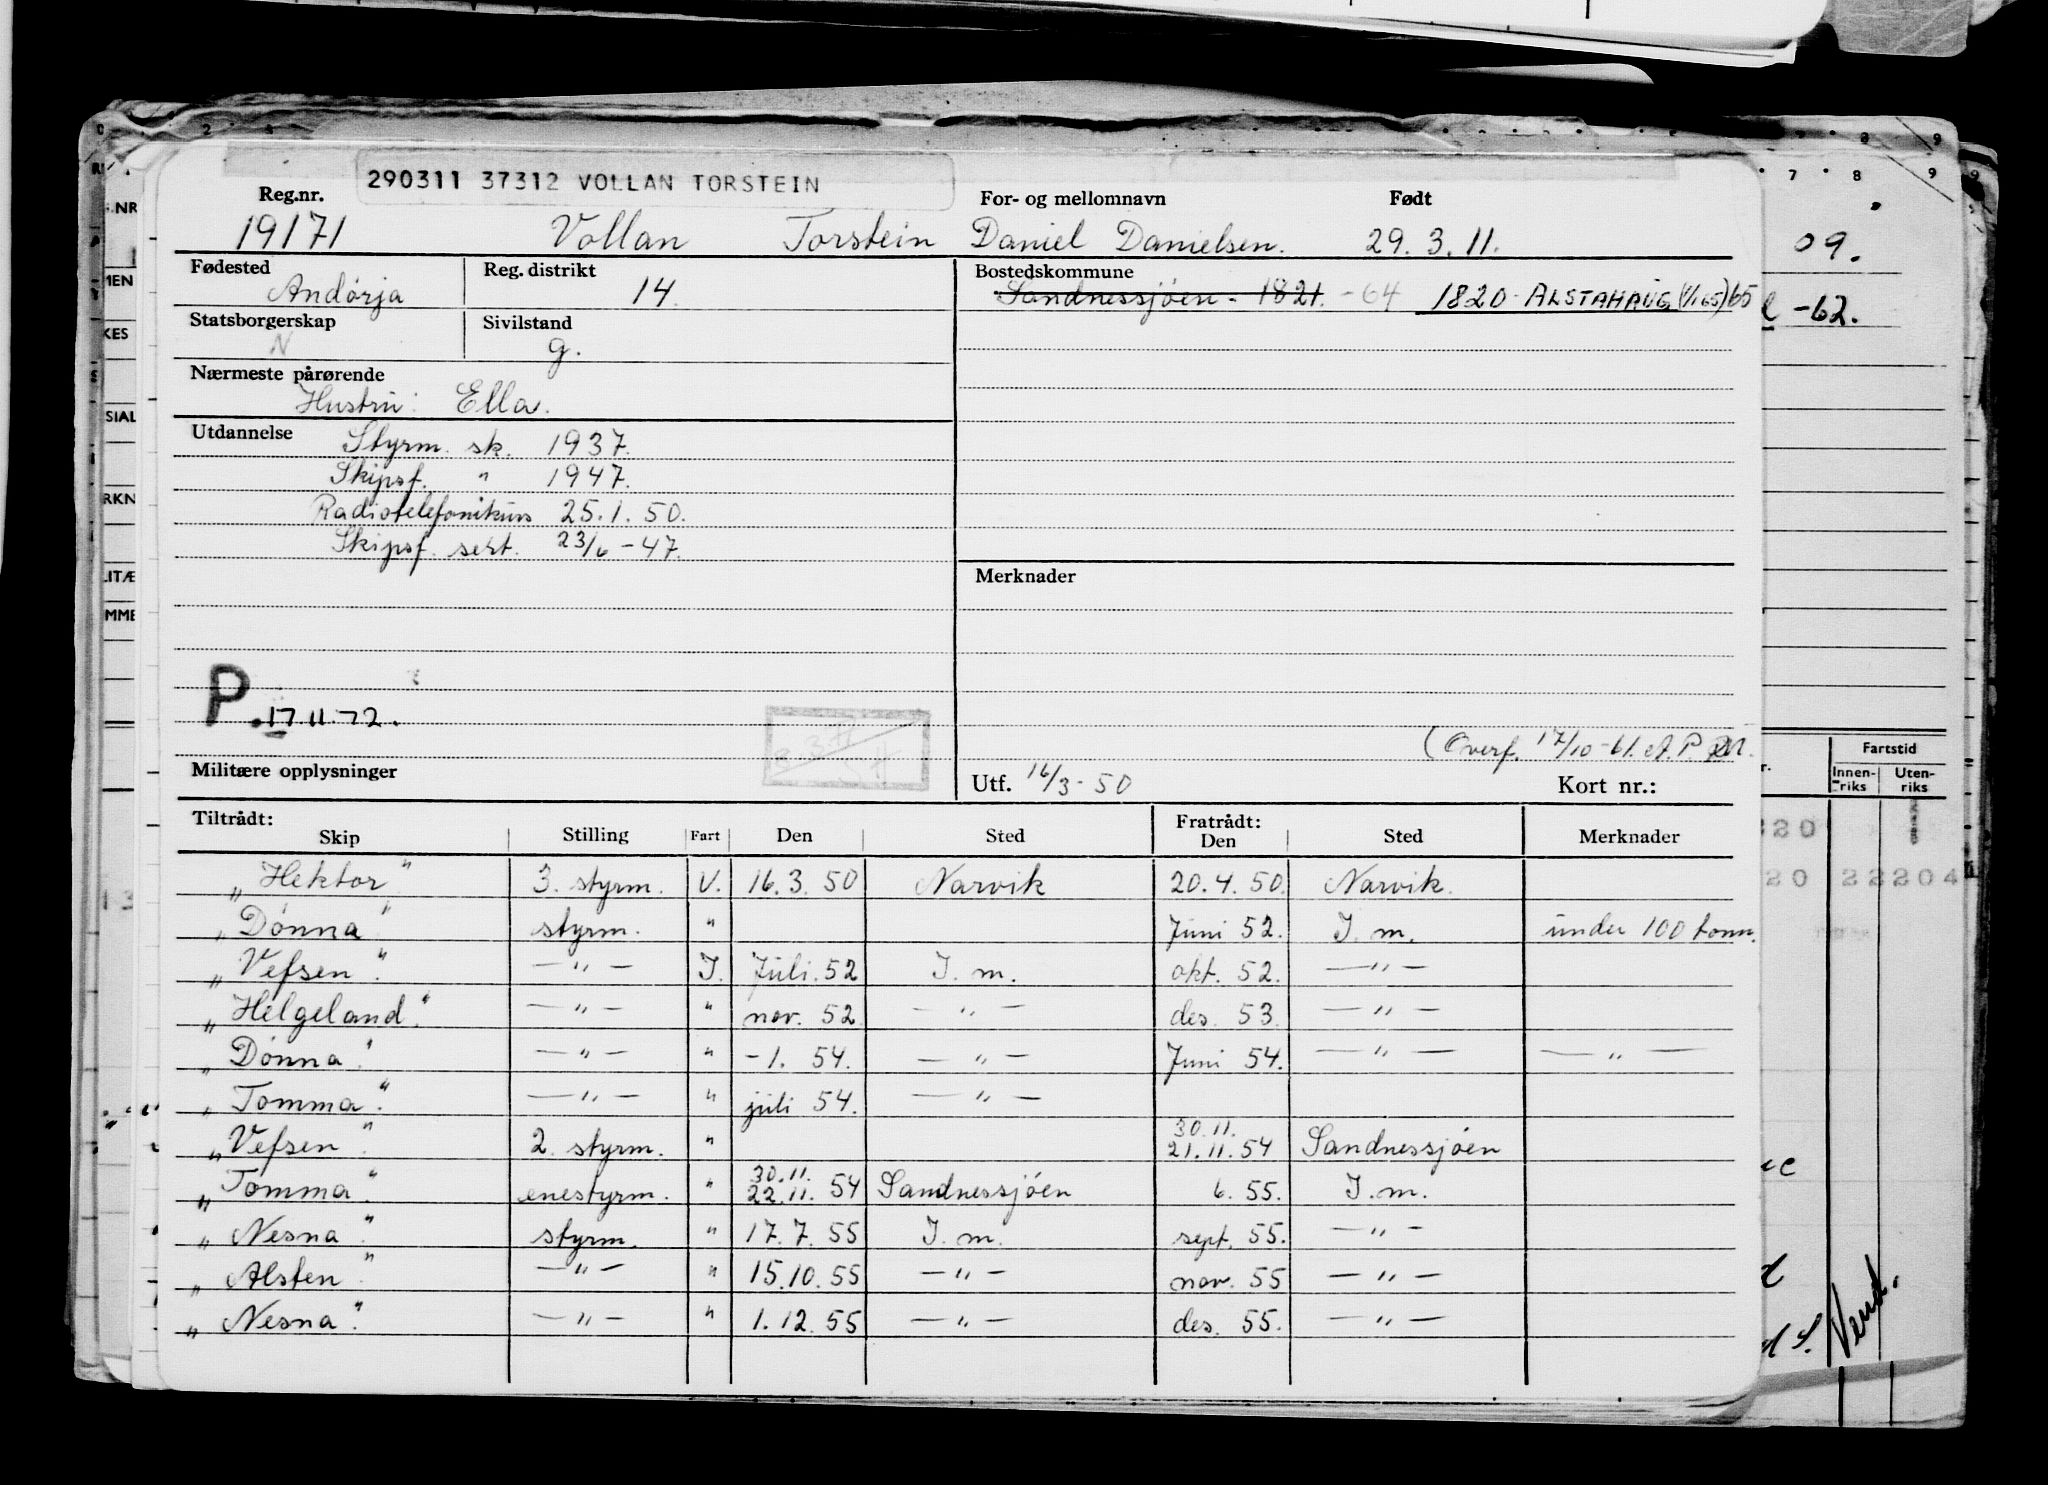 290311 37312 VOLLAN TORSTEIN
Reg.nr. For- og mellomnavn Født
19171 Vollan Torstein Daniel Danielsen. 29. 3. 11.
Fødested Reg. distrikt Bostedskommune
Andørja 14. Sandnessjøen - 1821. -64 1820 - ALSTAHAUG (1/1 65) 65
Statsborgerskap Sivilstand
N g.
Nærmeste pårørende
Hustru: Ella.
Utdannelse
Styrm. sk. 1937.
Skipsf. " 1947.
Radiotelefonikurs 25.1.50.
Skipsf. sert. 23/6 - 47.
Merknader
P. 17 11 72.
(Overf. 17/10-61. A. P.
Militære opplysninger Utf. 16/3 - 50 Kort nr.:
Tiltrådt: Fratrådt:
Skip Stilling Fart Den Sted Den Sted Merknader
„Hektor" 3. styrm. V. 16.3.50 Narvik 20.4.50. Narvik.
„Dønna" styrm. " Juni 52. I. m. under 100 tonn.
„Vefsen". —"— I. Juli. 52 I. m. okt. 52. —"—
„Helgeland". —"— " nov. 52 —"— des. 53. —"—
„Dønna". —"— " -1. 54. —"— Juni 54. —"— —"—
„Tomma". —"— " juli 54. —"—
30.11.
„Vefsen". 2. styrm. " 21.11.54 Sandnessjøen
30.11.
„Tomma". enestyrm. " 22.11. 54 Sandnessjøen 6. 55. I. m.
„Nesna". styrm. " 17. 7. 55 I. m. sept. 55. —"—
„Alsten". —"— " 15.10.55 —"— nov. 55 —"—
„Nesna". —"— " 1.12.55 —"— des. 55. —"—
09.
-62.
Fartstid
Innen-riks Uten-riks
20
20 22204
Vend.